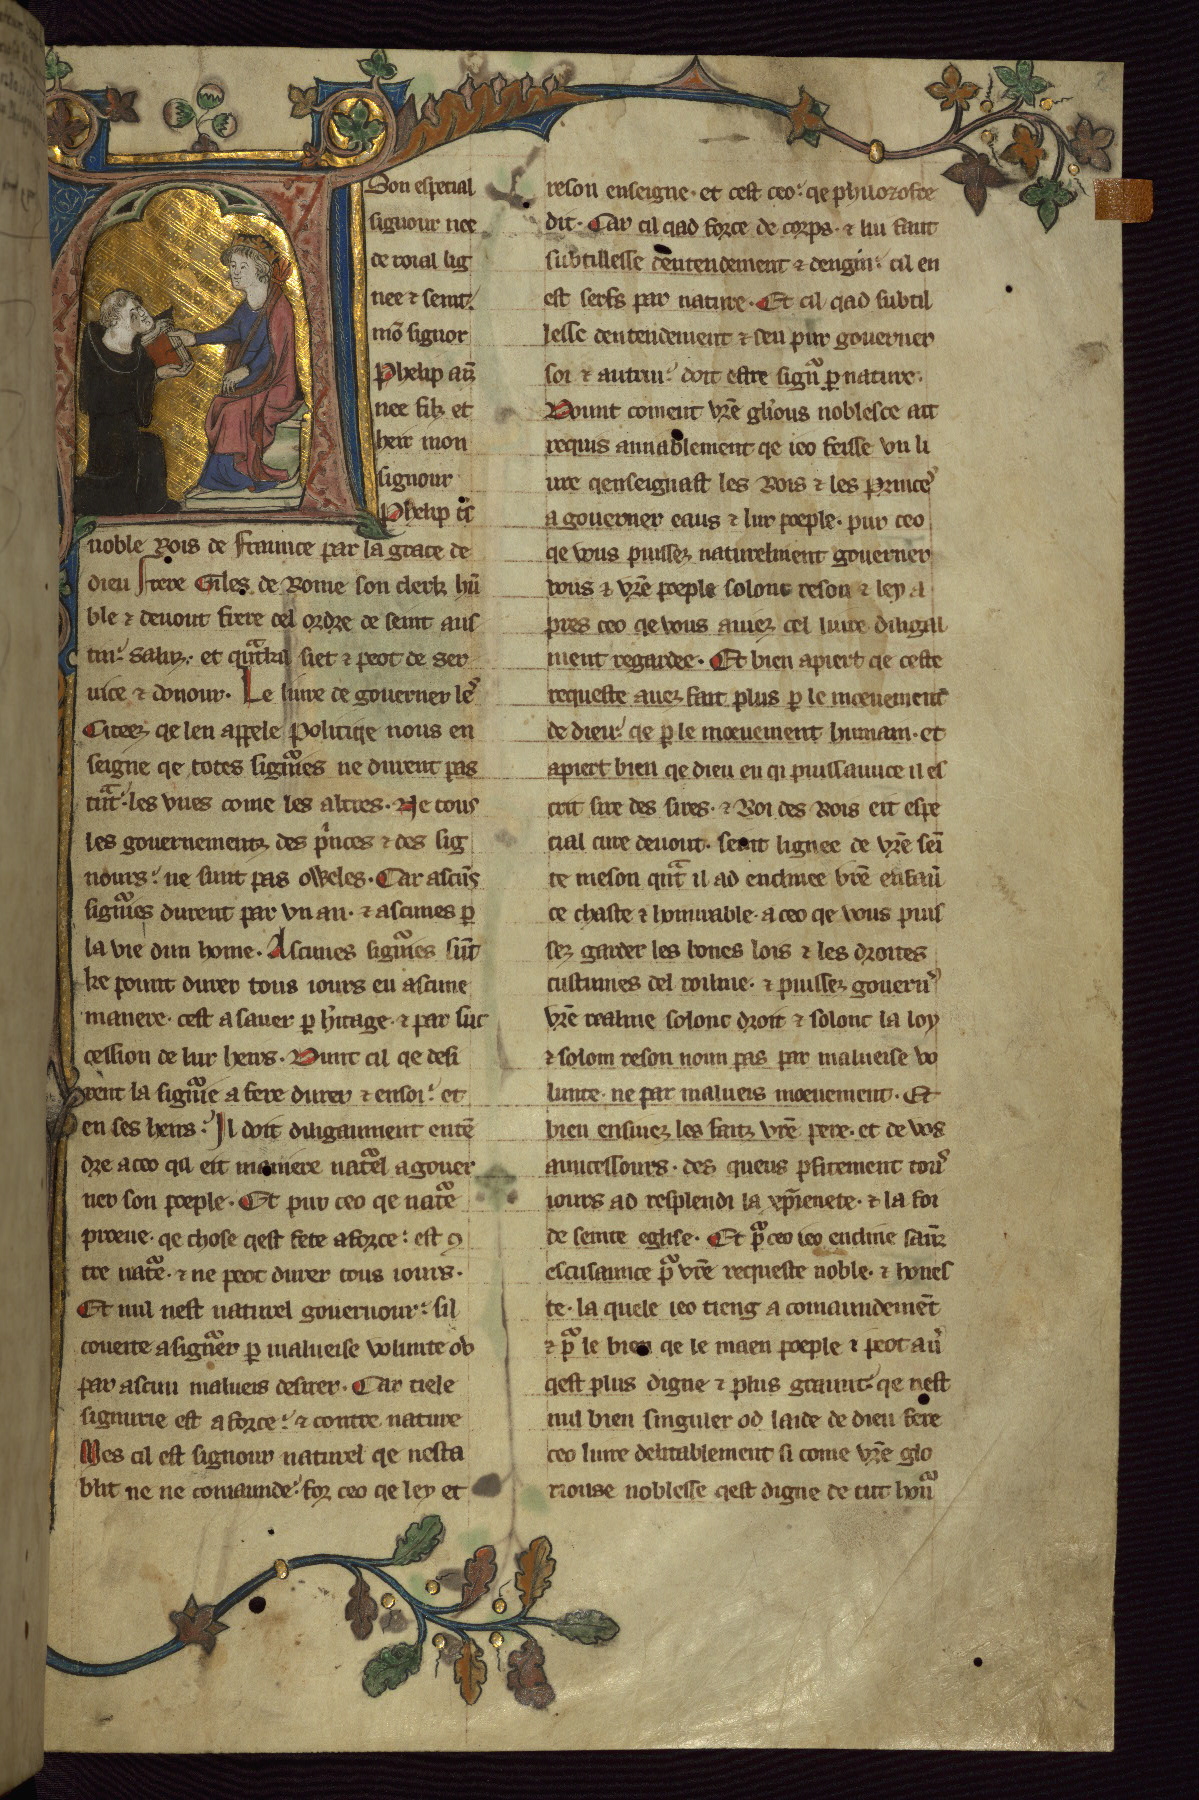 Son especial
signour nee
de roial lig
nee ⁊ seint:
mō signor
Phelip aīz
nee filz et
heir mon
signour
Phelip t̄s
noble Rois de Fraunce par la grace de
dieu Frere Giles de Rome son clerk hū
ble ⁊ deuout frere del ordre de seint aus
tin: Saluz. et qͣ̄tkil siet ⁊ peot de ser
uice ⁊ donour. Le liure de gouerner leˢ
Citeez qe len appele Politiqe nous en
seigne qe totes signͬies ne durent pas
tāt. les vnes come les altres. Ne tous
les gouernementz des p̄nces ⁊ des sig
nours: ne sunt pas oweles. Car ascūs
signͬies durent par vn an. ⁊ ascunes ꝑ
la vie dun home. Ascunes signͬies sūt
ke point durer tous iours en ascune
manere. cest a sauer ꝑ h̓itage. ⁊ par suc
cession de lur heirs. Dunt cil qe desi
rent la signͬie a fere durer ⁊ en soi: et
en ses heirs: Il doit diligaument entē
dre a ceo qil eit maniere natͬel a gouer
ner son poeple. Et pur ceo qe natͬe
proeue. qe chose qest fete a force: est ꝯ
tre natͬe. ⁊ ne peot durer tous iours.
Et nul nest naturel gouernour: sil
coueite a signͬer ꝑ malueise volunte ov
par ascun malueis desirer. Car tiele
signurie est a force: ⁊ contre nature
Mes cil est signour naturel qe nesta
blit ne ne comaunde: forz ceo qe ley et
reson enseigne. et cest ceo: qe philozofre
dit. Car cil qad force de corps. ⁊ lui faut
subtillesse dentendement ⁊ dengin: cil en
est serfs par nature. Et cil qad subtil
lesse dentendement ⁊ seu pur gouerner
soi ⁊ autrui: doit estre signͬ ꝑ nature.
Dount coment vr̄e gl̓ious noblesce ait
requis amiablement qe ieo feisse vn li
ure qenseignast les Rois ⁊ les Princeˢ
a gouerner eaus ⁊ lur poeple. pur ceo
qe vous puissez naturelment gouerner
vous ⁊ vr̄e poeple solonc reson ⁊ ley a
pres ceo qe vous auiez cel liure diligal
ment regardee. Et bien apiert qe ceste
requeste auez fait plus ꝑ le moeuement
de dieu: qe ꝑ le moeuement humain. et
apiert bien qe dieu en qi puissaunce il es
crit sire des sires. ⁊ Roi des Rois eit espe
cial cure deuout. seint lignee de vr̄e sei
te meson qͣ̄t il ad enclinee vr̄e enfaū
ce chaste ⁊ honurable. a ceo qe vous puis
sez garder les bones lois ⁊ les droites
custumes del roilme. ⁊ puissez gouern̓
vr̄e realme solonc droit ⁊ solonc la loy
⁊ solom reson noun pas par malueise vo
lunte. ne par malueis moeuement. Et
bien ensiuez les faitz vr̄e pere. et de vos
auncessours. des queus ꝑfitement toꝰ
iours ad resplendi la xp̄ienete. ⁊ la foi
de seinte eglise. Et pͬ ceo ieo encline sāz
escusaunce pͬ vr̄e requeste noble. ⁊ hones
te. la quele ieo tieng a comaundemēt
⁊ pͬ le bien qe le maen poeple ⁊ peot aū
qest plus digne ⁊ plus graunt: qe nest
nul bien singuler od laide de dieu fere
ceo liure delitablement si come vr̄e glo
riouse noblesse qest digne de tut honͬ